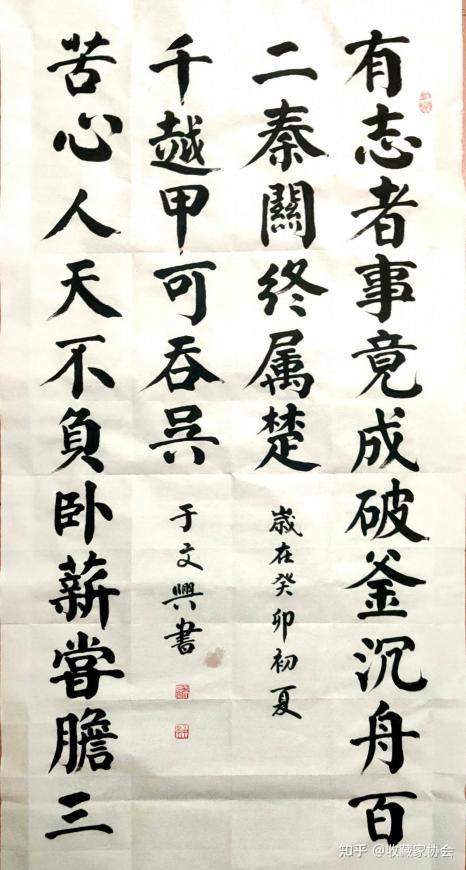 有志者事竟成破釜沉舟百
二秦關終属楚
歲在癸卯初夏
苦心人天不負卧薪嘗膽三
千越甲可吞吳
于文興書
知乎 @收藏家协会